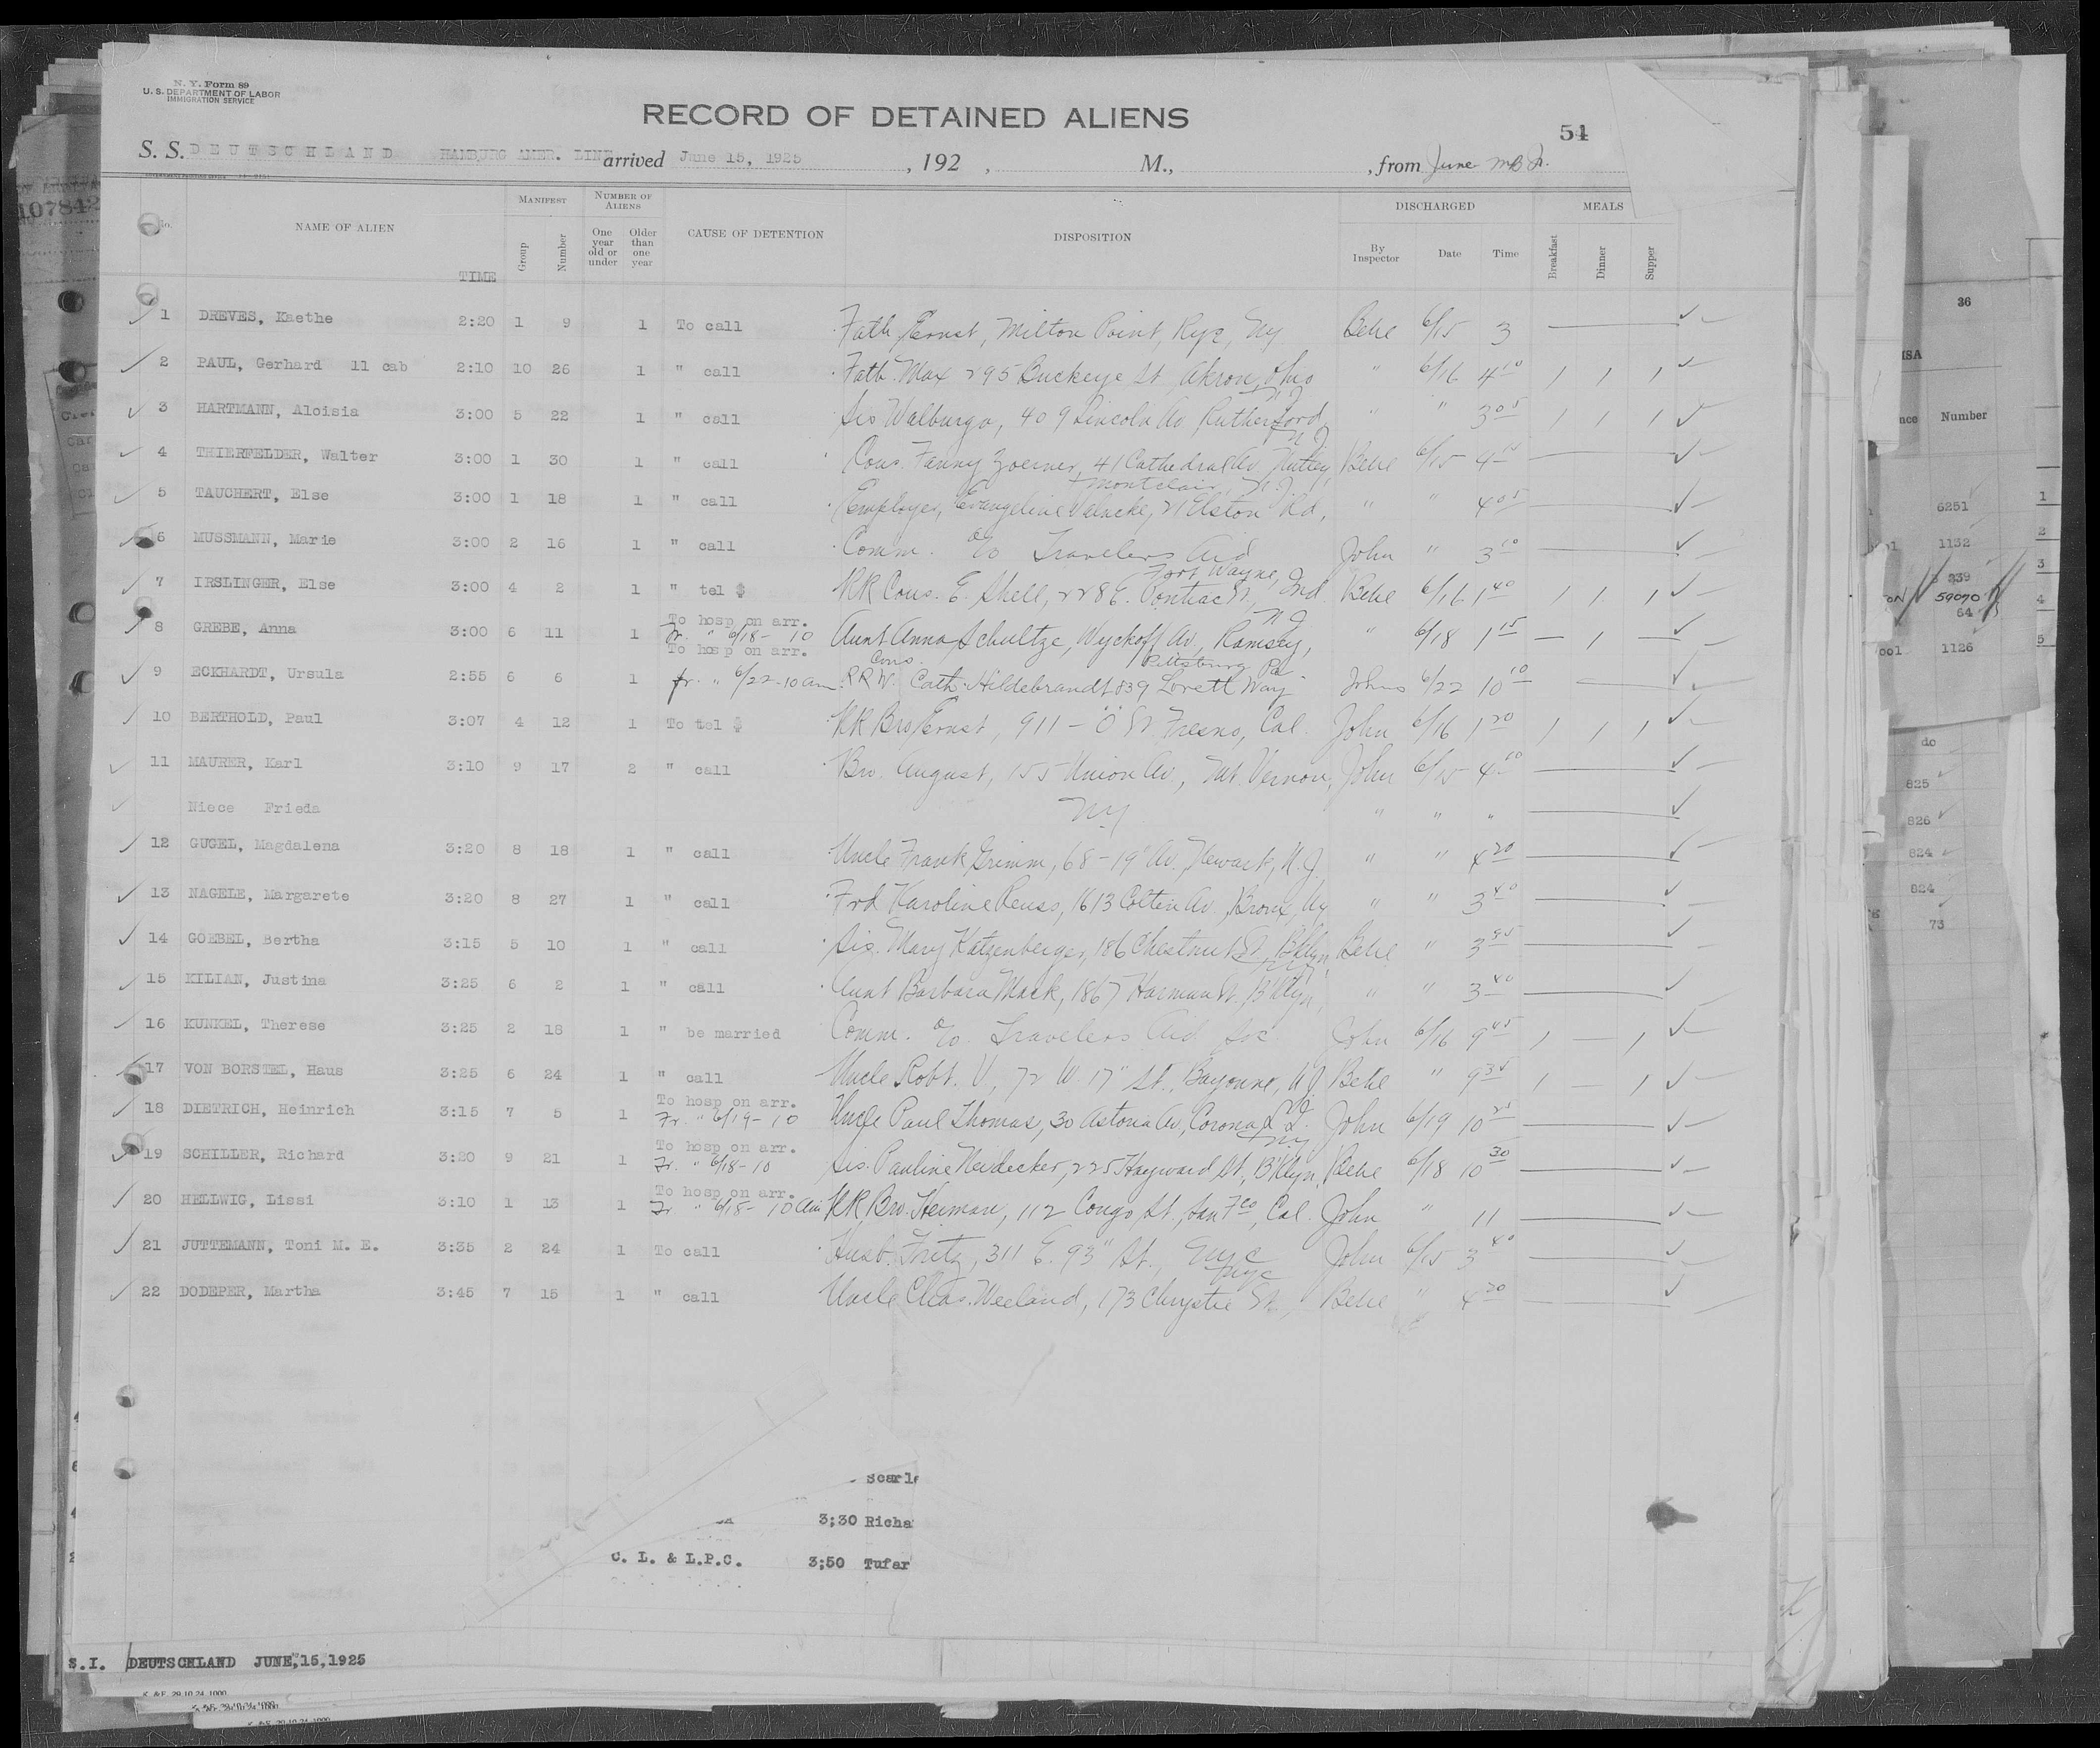 N. Y. Form 89
U. S. DEPARTMENT OF LABOR
IMMIGRATION SERVICE
RECORD OF DETAINED ALIENS
54
S. S. DEUTSCHLAND HAMBURG AMER. LINE arrived June 15, 1925 , 192 , M., , from June
No. NAME OF ALIEN TIME MANIFEST Group Number NUMBER OF ALIENS One year old or under Older than one year CAUSE OF DETENTION DISPOSITION DISCHARGED By Inspector Date Time MEALS Breakfast Dinner Supper
1 DREVES, Kaethe 2:20 1 9 1 To call Fath. Ernst, Milton Point, Rye, NY Behe 6/15 3
2 PAUL, Gerhard 11 cab 2:10 10 26 1 " call Fath. Max 295 Buckeye St Akron, Ohio " 6/16 4 10 1 1 1
3 HARTMANN, Aloisia 3:00 5 22 1 " call Sis Walburga, 409 Lincoln Av Rutherford, N J " " 3 05 1 1 1
4 THIERFELDER, Walter 3:00 1 30 1 " call Cous. Fanny Zoerner, 41 Cathedral Av Nutley, N J Behe 6/15 4
5 TAUCHERT, Else 3:00 1 18 1 " call Employer, Evangeline 21 Elston Rd, Montclair, N.J. " " 4 05
6 MUSSMANN, Marie 3:00 2 16 1 " call Comm. c/o Travelers Aid John " 3 10
7 IRSLINGER, Else 3:00 4 2 1 " tel $ RR Cous. E. Shell, 228 E. Pontiac St, Fort Wayne, Ind. Behe 6/16 1 40 1 1 1
8 GREBE, Anna 3:00 6 11 1 To hosp on arr. Fr. " 6/18 - 10 Aunt Anna Schultze, Wyckoff Av, Ramsey, N J " 6/18 1 15 1
9 ECKHARDT, Ursula 2:55 6 6 1 To hosp on arr. fr. " 6/22 - 10 am RRW. Cous. Cath. Hildebrandt 839 Lovett Way Pittsburg Pa Johns 6/22 10 10
10 BERTHOLD, Paul 3:07 4 12 1 To tel $ RR Bro Ernst, 911 - "O" St. Fresno, Cal. John 6/16 1 20 1 1 1
11 MAURER, Karl 3:10 9 17 2 " call Bro. August, 155 Union Av, Mt. Vernon, John 6/15 4
Niece Frieda NY " " "
12 GUGEL, Magdalena 3:20 8 18 1 " call Uncle Frank Grimm, 68 - 19" Av. Newark, N.J. " " 4 20
13 NAGELE, Margarete 3:20 8 27 1 " call Frd Karoline Reuss, 1613 Av, Bronx, NY " " 3 40
14 GOEBEL, Bertha 3:15 5 10 1 " call Sis. Mary Katzenberger, 186 Chestnut St, Bklyn, NY Behe " 3
15 KILIAN, Justina 3:25 6 2 1 " call Aunt Barbara Mack, 1867 Harman St. Bklyn, " " 3 40
16 KUNKEL, Therese 3:25 2 18 1 " be married Comm. c/o. Travelers Aid Soc John 6/16 9 45 1 1
17 VON BORSTEL, Haus 3:25 6 24 1 " call Uncle Robt. V, 72 W. 17" St., Bayonne, NJ Behe " 9 35 1 1
18 DIETRICH, Heinrich 3:15 7 5 1 To hosp on arr. Fr. " 6/19 - 10 Uncle Paul Thomas, 30 Astoria Av, Corona, L I. NY John 6/19 10
19 SCHILLER, Richard 3:20 9 21 1 To hosp on arr. Fr. " 6/18 - 10 Sis. Pauline Neidecker, 225 Hayward St, B'klyn, NY Behe 6/18 10 30
20 HELLWIG, Lissi 3:10 1 13 1 To hosp on arr. Fr " 6/18 - 10 am RR Bro. Herman, 112 Congo St., San Fco, Cal. John " 11
21 JUTTEMANN, Toni M. E. 3:35 2 24 1 To call Husb. Fritz, 311 E. 93" St., NYC John 6/15 3 40
22 DODEPER, Martha 3:45 7 15 1 " call Uncle Chas. Weeland, 173 Chrystie St, NYC Behe " 4 20
Scarle
3;30 Richa
C. L. & L.P.C. 3;50 Tufar
S.I. DEUTSCHLAND JUNE,15,1925
K &F. 29.10.24.1000
107842
36
Number
6251
1132
839
59070
64
1126
do
825
826
824
824
73
1
2
3
4
5